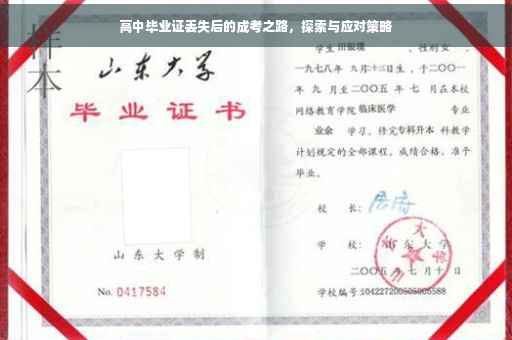 高中毕业证丢失后的成考之路，探索与应对策略
样本
山东大学
毕业证书
山东大学制
No. 0417584
学生 田 ，性别女，
一九七八年 九月十二日生，于二〇〇一
年 九 月至二〇〇五 年 七 月在本校
网络教育学院 临床医学 专业
业余 学习，修完专科升本 科教学
计划规定的全部课程，成绩合格，准予
毕业。
校 长：
学 校： 山东大学
二〇〇五 年 七 月 十 日
学校编号:104227200505005588